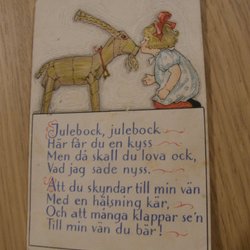 Julebock, julebock
Här får du en kyss
Men då skall du lova ock,
Vad jag sade nyss.
Att du skyndar till min vän
Med en hälsning kär,
Och att många klappar se'n
Till min vän du bär!